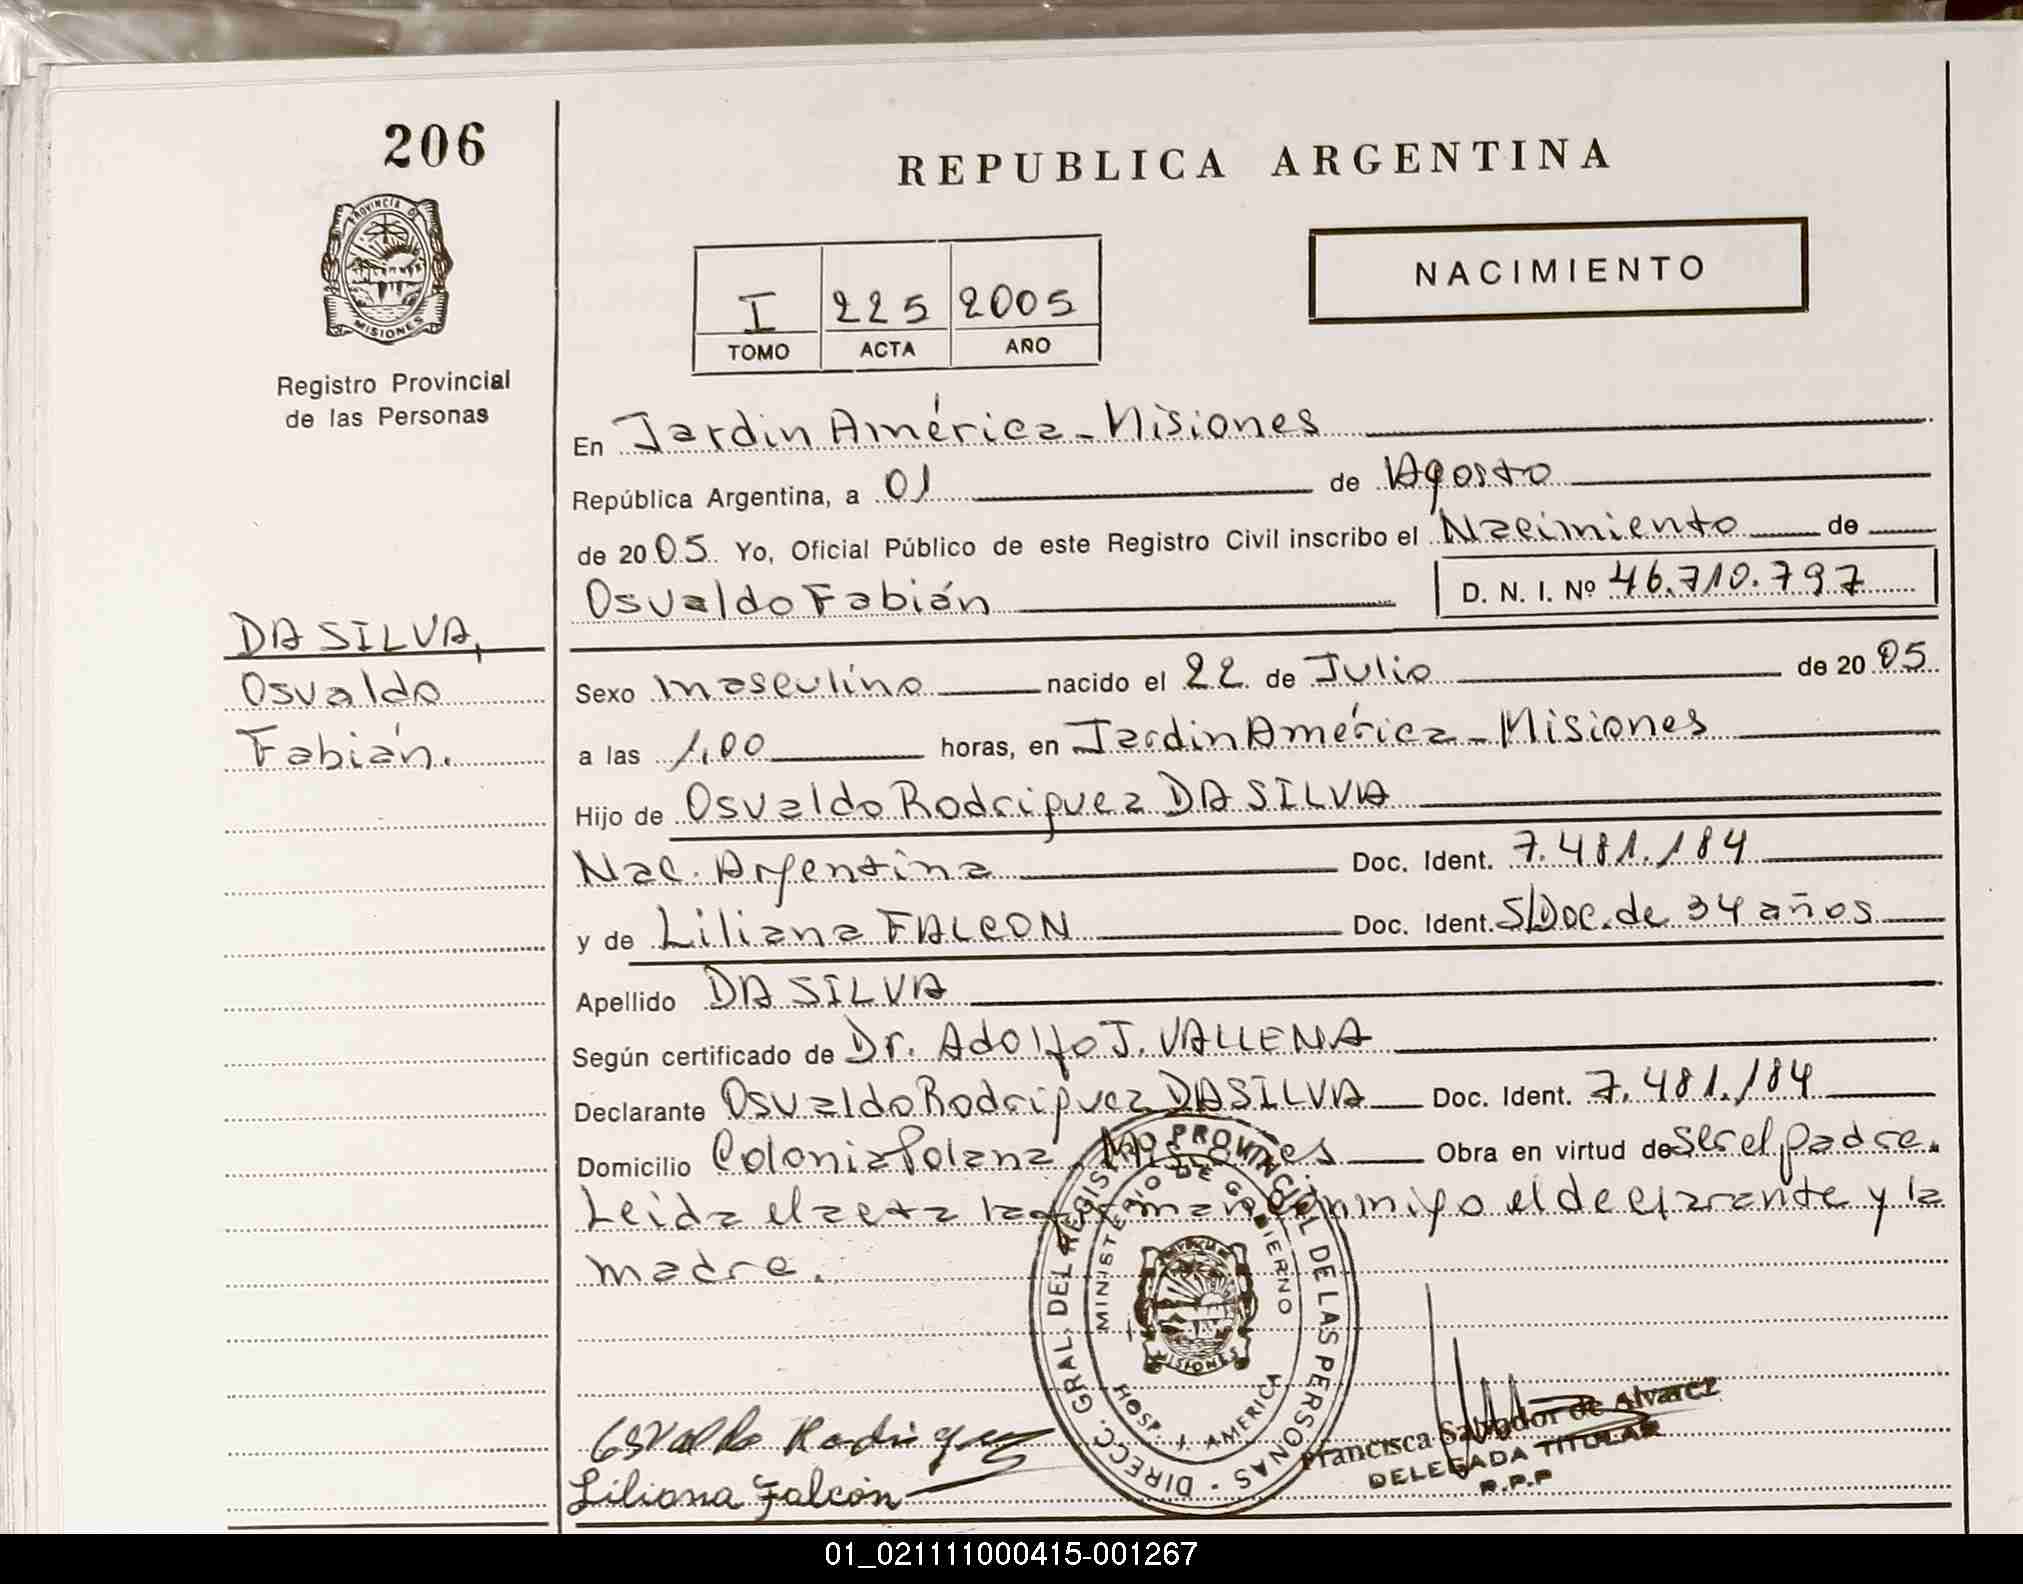 206
PROVINCIA DE
MISIONES
Registro Provincial
de las Personas
DA SILVA,
Osvaldo
Fabián.
REPUBLICA ARGENTINA
NACIMIENTO
I 225 2005
TOMO ACTA AÑO
En Jardin América - Misiones
República Argentina, a 01 de Agosto
de 2005 Yo, Oficial Público de este Registro Civil inscribo el Nacimiento de
Osvaldo Fabián D. N. I. Nº 46.710.797
Sexo masculino nacido el 22 de Julio de 2005
a las 1,00 horas, en Jardin América - Misiones
Hijo de Osvaldo Rodriguez DA SILVA
Nac. Argentina Doc. Ident. 7.481.184
y de Liliana FALCON Doc. Ident. S/Doc. de 34 años
Apellido DA SILVA
Según certificado de Dr. Adolfo J. VALLENA
Declarante Osvaldo Rodriguez DA SILVA Doc. Ident. 7.481.184
Domicilio Colonia Polana, Misiones Obra en virtud de ser el padre.
Leida el acta la firman conmigo el declarante y la
madre.
DIRECC. GRAL. DEL REGISTRO PROVINCIAL DE LAS PERSONAS
MINISTERIO DE GOBIERNO
MISIONES
HOSP. J. AMERICA
Osvaldo Rodriguez
Liliana Falcón
Francisca Salvador de Alvarez
DELEGADA TITULAR
R.P.P
01_021111000415-001267